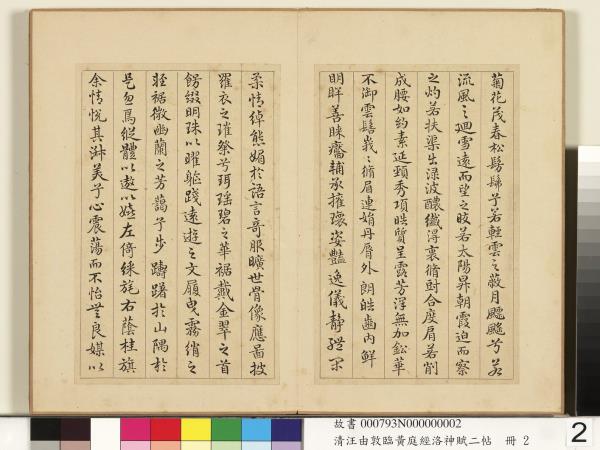 菊花茂春松髣髴兮若輕雲之蔽月飄颻兮若
流風之迴雪遠而望之皎若太陽昇朝霞迫而察
之灼若扶渠出淥波醲纖得衷脩短合度肩若削
成腰如約素延頸秀項皓質呈露芳澤無加鉛華
不御雲髻峩峩脩眉連娟丹脣外朗皓齒內鮮
明眸善睞靨輔承權瓌姿豔逸儀靜體閑
柔情綽態媚於語言奇服曠世骨像應圖披
羅衣之璀粲兮珥瑶碧之華裾戴金翠之首
餝綴明珠以曜軀踐遠遊之文履曳霧綃之
輕裾微幽蘭之芳藹兮步躊躇於山隅於
是忽焉縱體以遨以嬉左倚綵旄右蔭桂旗
余情悅其淑美兮心震蕩而不怡無良媒以
故書 000793N000000002
清汪由敦臨黃庭經洛神賦二帖 冊 2
2